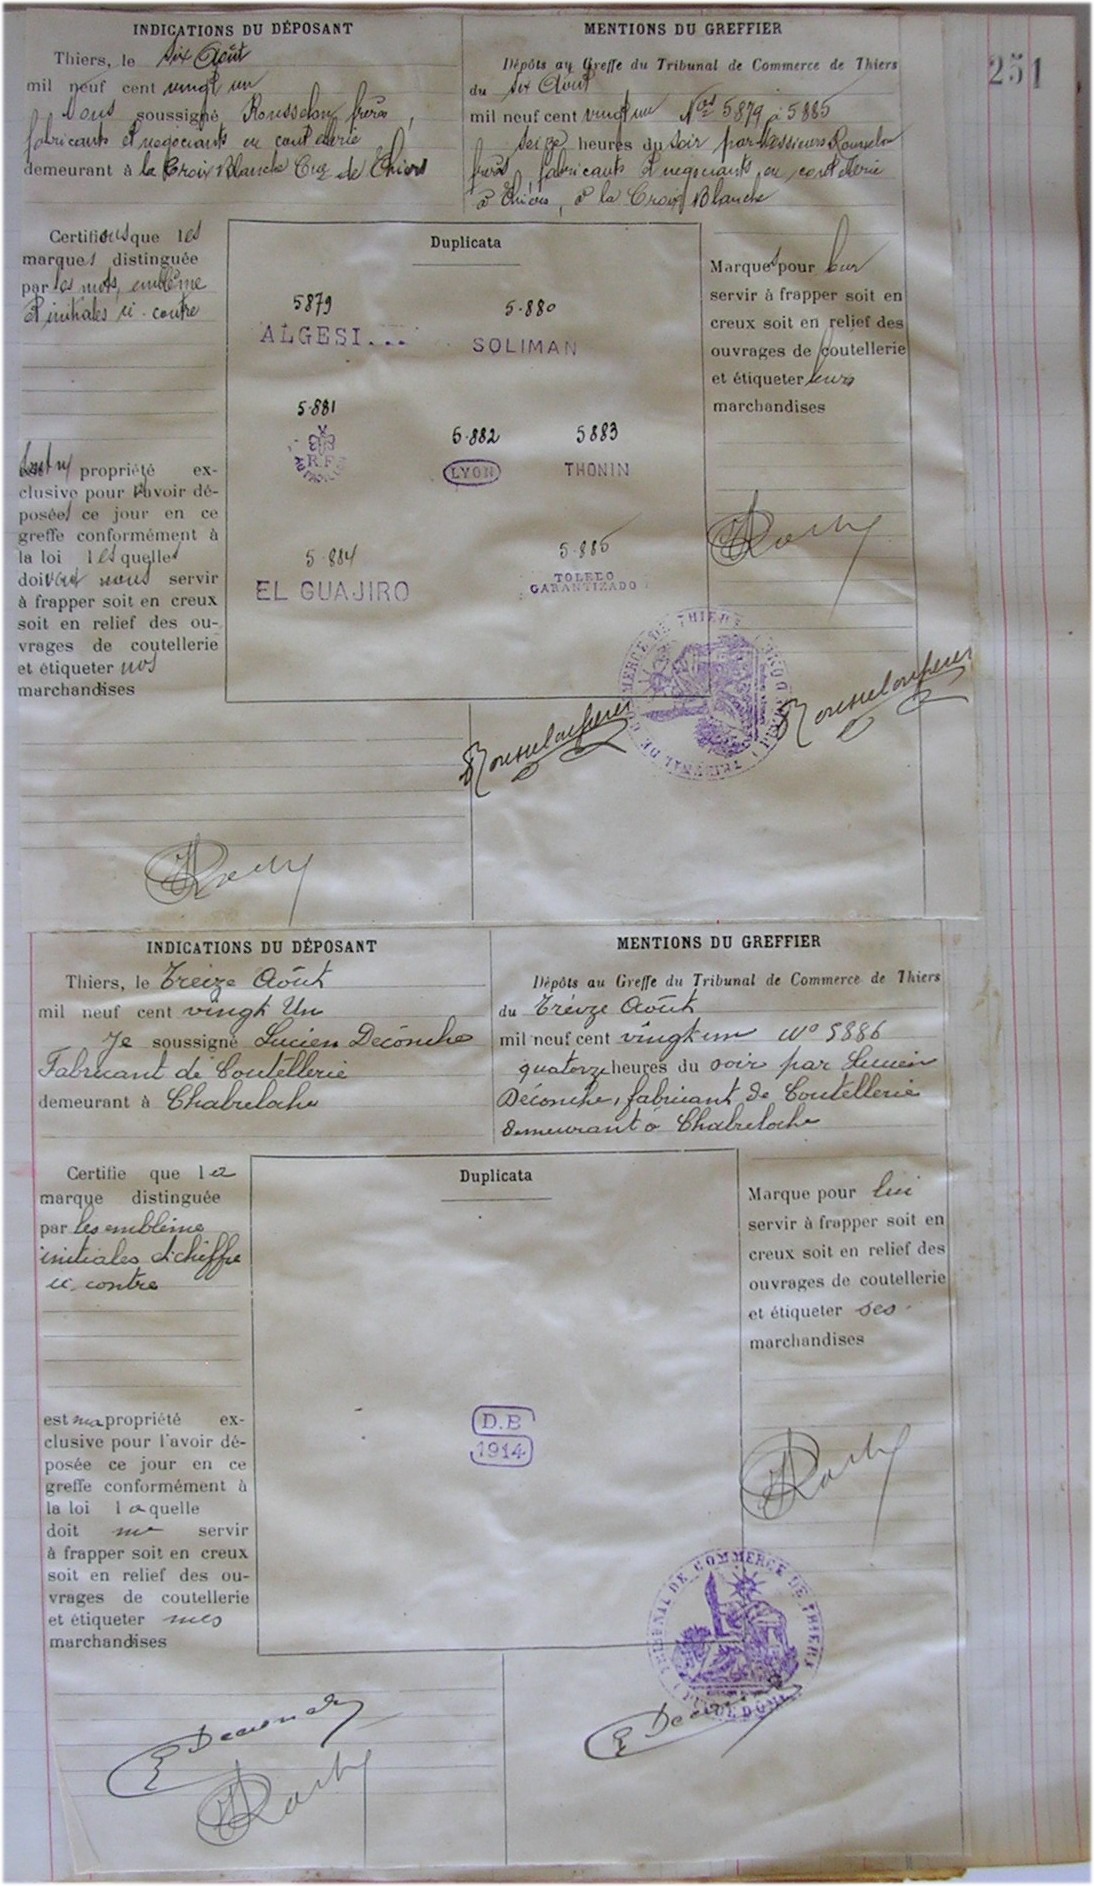 251
INDICATIONS DU DÉPOSANT
Thiers, le six Août
mil neuf cent vingt un
Nous soussigné Rousselon frères,
fabricants et négociants en coutellerie
demeurant à la Croix Blanche Cne de Thiers
MENTIONS DU GREFFIER
Dépôts au Greffe du Tribunal de Commerce de Thiers
du six Août
mil neuf cent vingt un Nos 5879 à 5885
seize heures du soir par Messieurs Rousselon
frères, fabricants et négociants en coutellerie
à Thiers, à la Croix Blanche
Certifions que les
marques distinguée
par les mots, emblême
et initiales ci-contre
sont propriété ex-
clusive pour l'avoir dé-
posées ce jour en ce
greffe conformément à
la loi lesquelles
doivent nous servir
à frapper soit en creux
soit en relief des ou-
vrages de coutellerie
et étiqueter nos
marchandises
Duplicata
5879
ALGESI...
5.880
SOLIMAN
5.881
R.F.
5.882
LYON
5883
THONIN
5.884
EL GUAJIRO
5.885
TOLEDO
GARANTIZADO
Marques pour leur
servir à frapper soit en
creux soit en relief des
ouvrages de coutellerie
et étiqueter leurs
marchandises
Rousselon frères
Rousselon frères
INDICATIONS DU DÉPOSANT
Thiers, le Treize Août
mil neuf cent vingt Un
Je soussigné Lucien Déconche
Fabricant de Coutellerie
demeurant à Chabreloche
MENTIONS DU GREFFIER
Dépôts au Greffe du Tribunal de Commerce de Thiers
du Treize Août
mil neuf cent vingt un No 5886
quatorze heures du soir par Lucien
Déconche, fabricant de Coutellerie
demeurant à Chabreloche
Certifie que la
marque distinguée
par les emblème
initiales et chiffre
ci-contre
est ma propriété ex-
clusive pour l'avoir dé-
posée ce jour en ce
greffe conformément à
la loi laquelle
doit me servir
à frapper soit en creux
soit en relief des ou-
vrages de coutellerie
et étiqueter mes
marchandises
Duplicata
D.B
1914
Marque pour lui
servir à frapper soit en
creux soit en relief des
ouvrages de coutellerie
et étiqueter ses
marchandises
TRIBUNAL DE COMMERCE DE THIERS
PUY DE DÔME